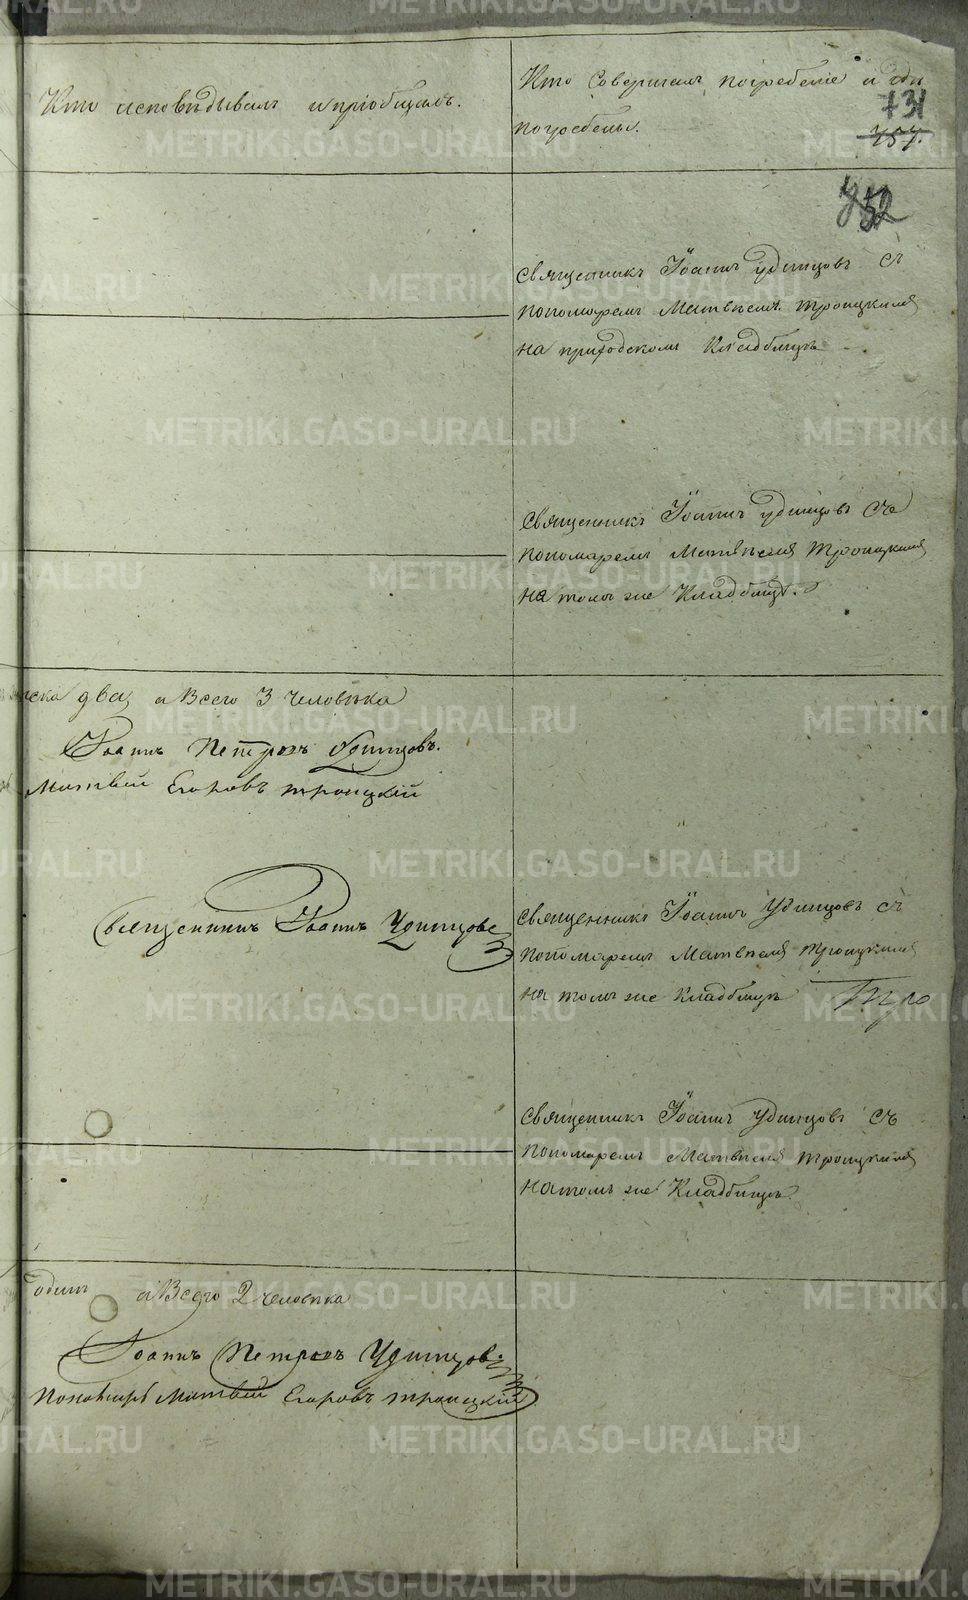 Кто исповѣдывалъ и пріобщалъ.
Кто совершалъ погребеніе и гдѣ
погребены.
731
757.
752
Священникъ Іоаннъ Удинцовъ съ
пономаремъ Матвѣемъ Троицкимъ
на приходскомъ кладбищѣ
Священникъ Іоаннъ Удинцовъ съ
пономаремъ Матвѣемъ Троицкимъ
на томъ же кладбищѣ.
два, а всего 3 человѣка
Іоаннъ Петровъ Удинцовъ.
Матвѣй Егоровъ Троицкій
Священникъ Іоаннъ Удинцовъ
Священникъ Іоаннъ Удинцовъ съ
пономаремъ Матвѣемъ Троицкимъ
на томъ же кладбищѣ
Священникъ Іоаннъ Удинцовъ съ
пономаремъ Матвѣемъ Троицкимъ
на томъ же кладбищѣ.
одинъ а всего 2 человѣка
Іоаннъ Петровъ Удинцовъ
Пономарь Матвѣй Егоровъ Троицкій
METRIKI.GASO-URAL.RU